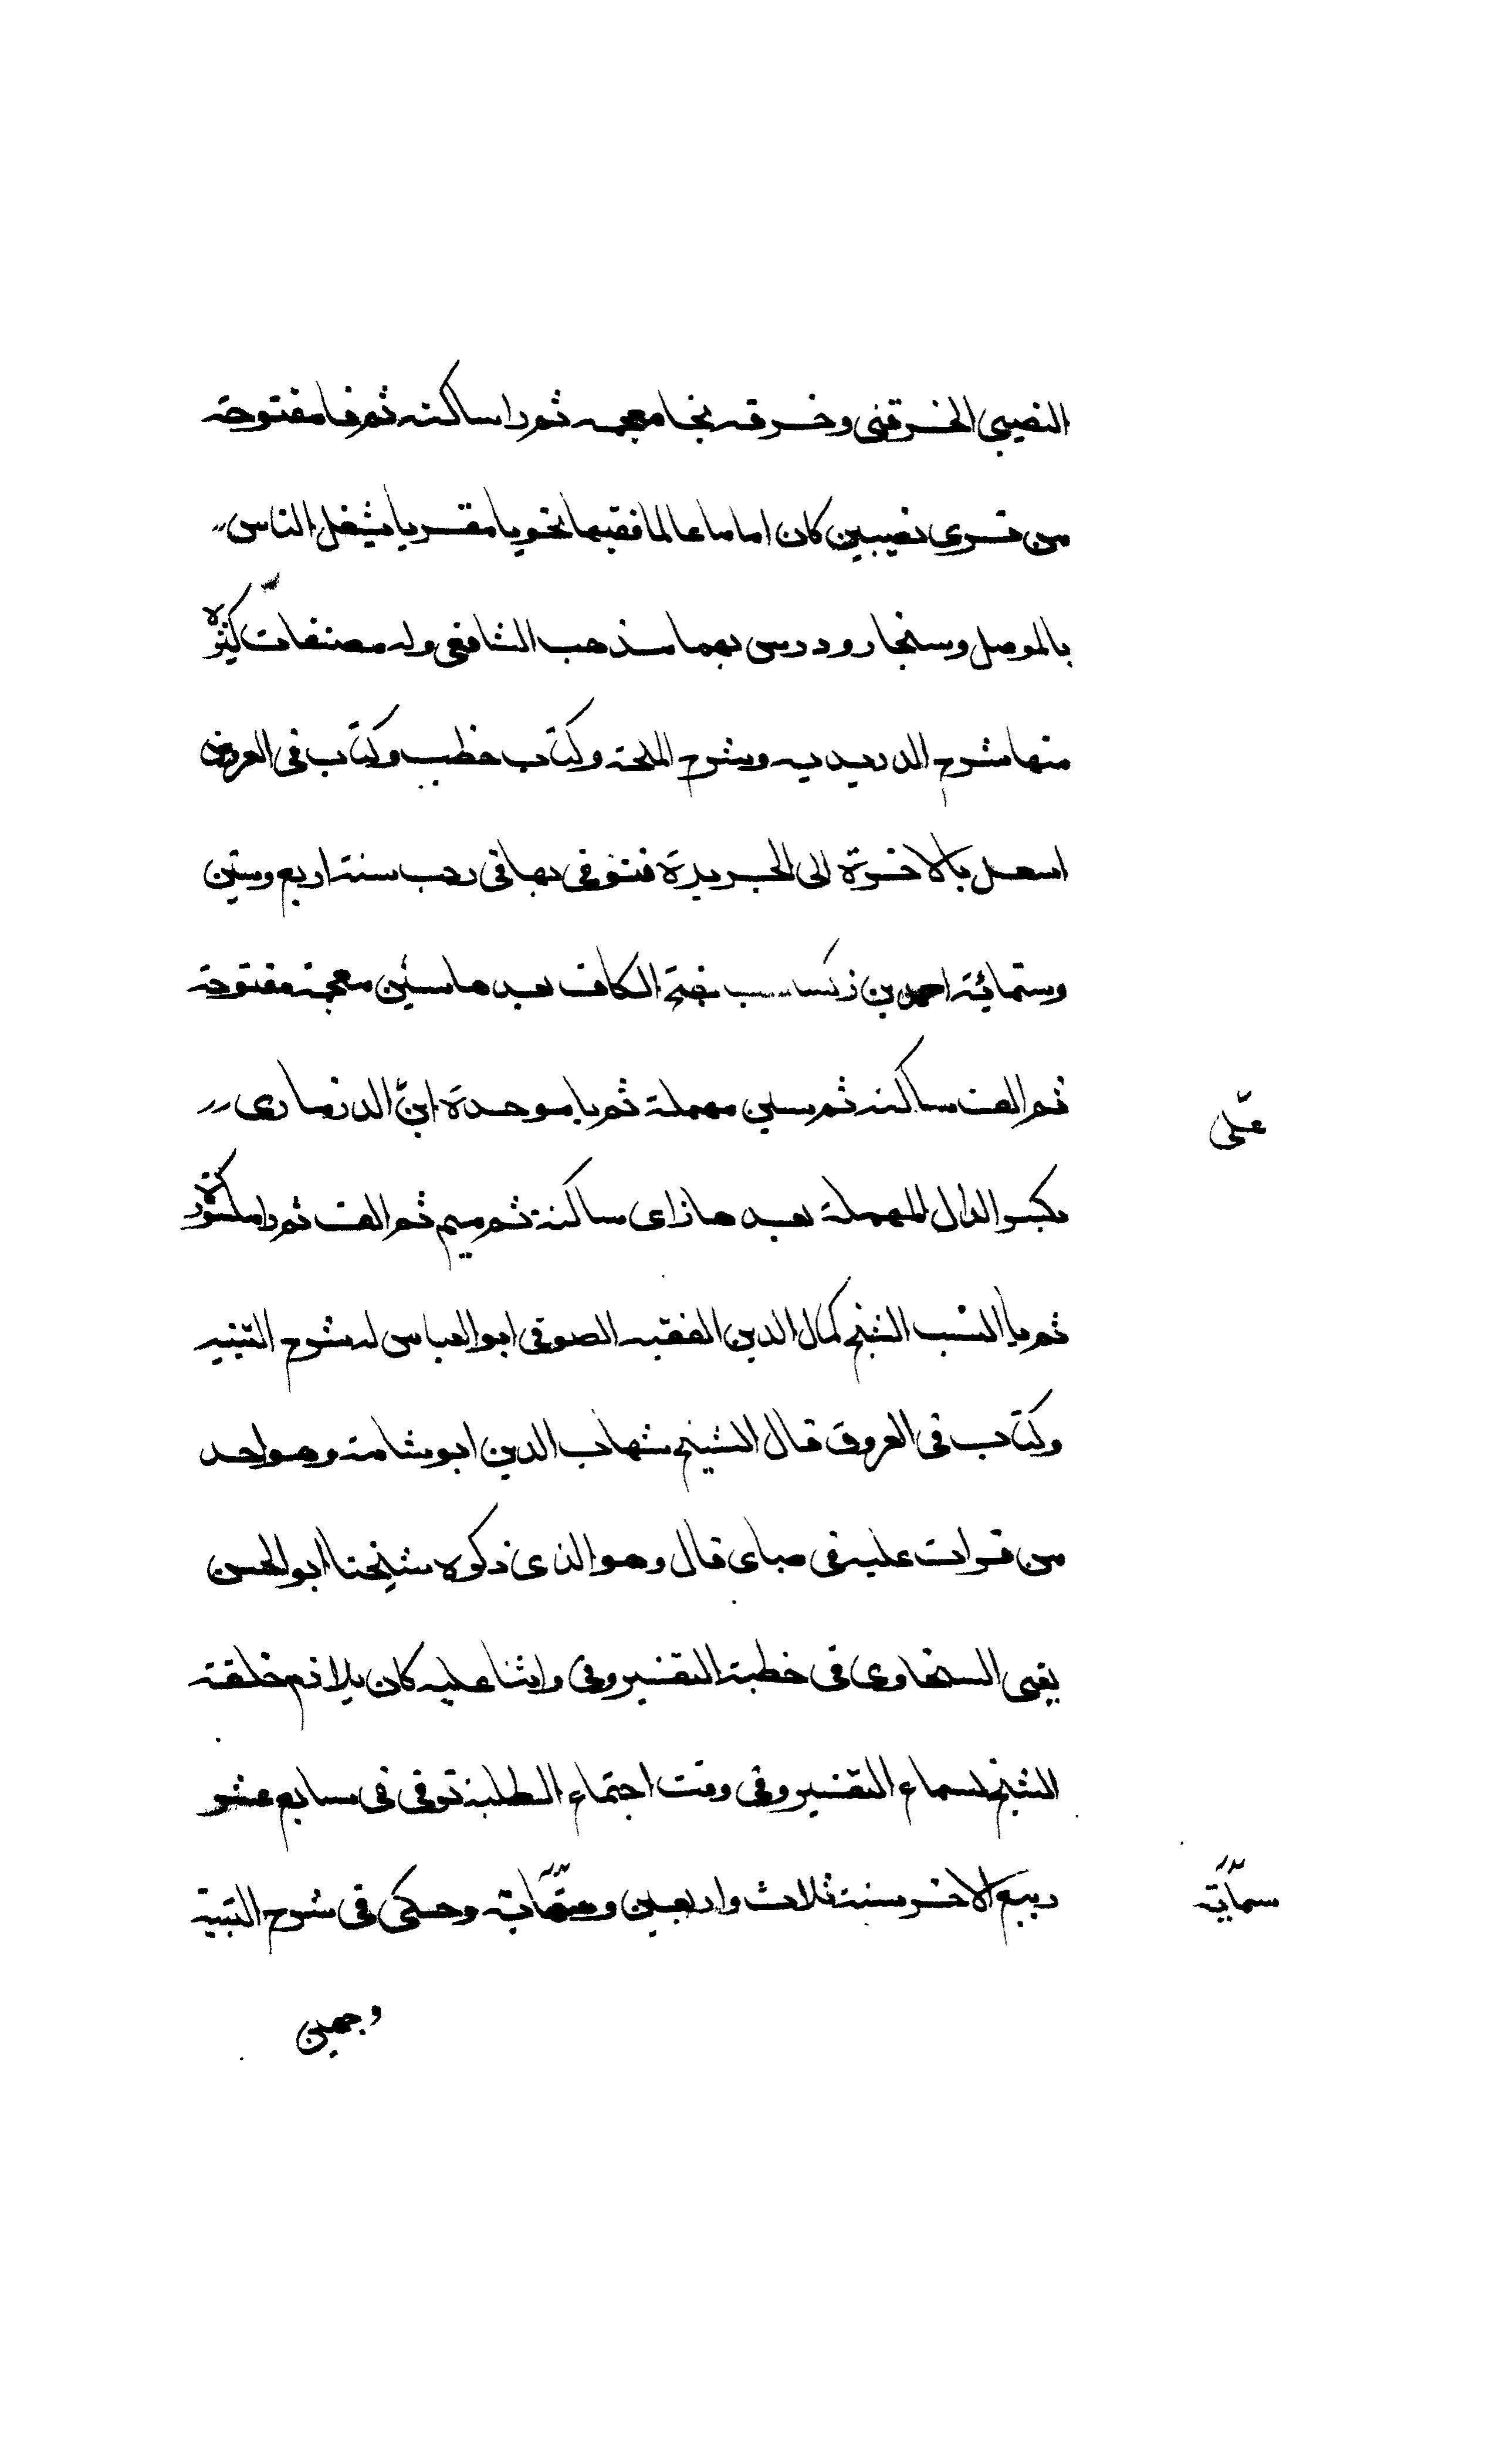 النصيبى الخرقنى وخرقه بخا معجمه ثم را ساكنه ثم فا مفتوحة
من قرى نصيبين كان اماما عالما فقيها نحويا مقريا يشغل الناس
بالموصل وسنجار ودرس بهما مذهب الشافعى وله مصنفات كثيرة
منها شرح الدريديه وشرح الملحة وكتاب خطب وكتاب فى العروض
بالاخرة الى الجزيرة فتوفى بها فى رجب سنة اربع وستين
وستمائة احمد بن كشاسب بفتح الكاف بعدها شين معجمة مفتوحة
ثم الف ساكنه ثم سين مهملة ثم با موحدة ابن الدزمارى
على
بكسر الدال المهملة بعدها زاى ساكنة ثم ميم ثم الف ثم را مكسورة
ثم يا النسب الشيخ كمال الدين الفقيه الصوفى ابو العباس له شرح التنبيه
وكتاب فى الفروق قال الشيخ شهاب الدين ابو شامة وهو احد
من قرات عليه فى صباى قال وهو الذى ذكره شيخنا ابو الحسن
يعنى السخاوى فى خطبة التفسير وفى واثنا عليه كان يلازم حلقة
الشيخ لسماع التفسير وفى وقت اجتماع الطلبة توفى فى سابع عشر
ربيع الاخر سنة ثلاث واربعين وستمائة وحكى فى شرح التنبيه
ستمائة
وجهين